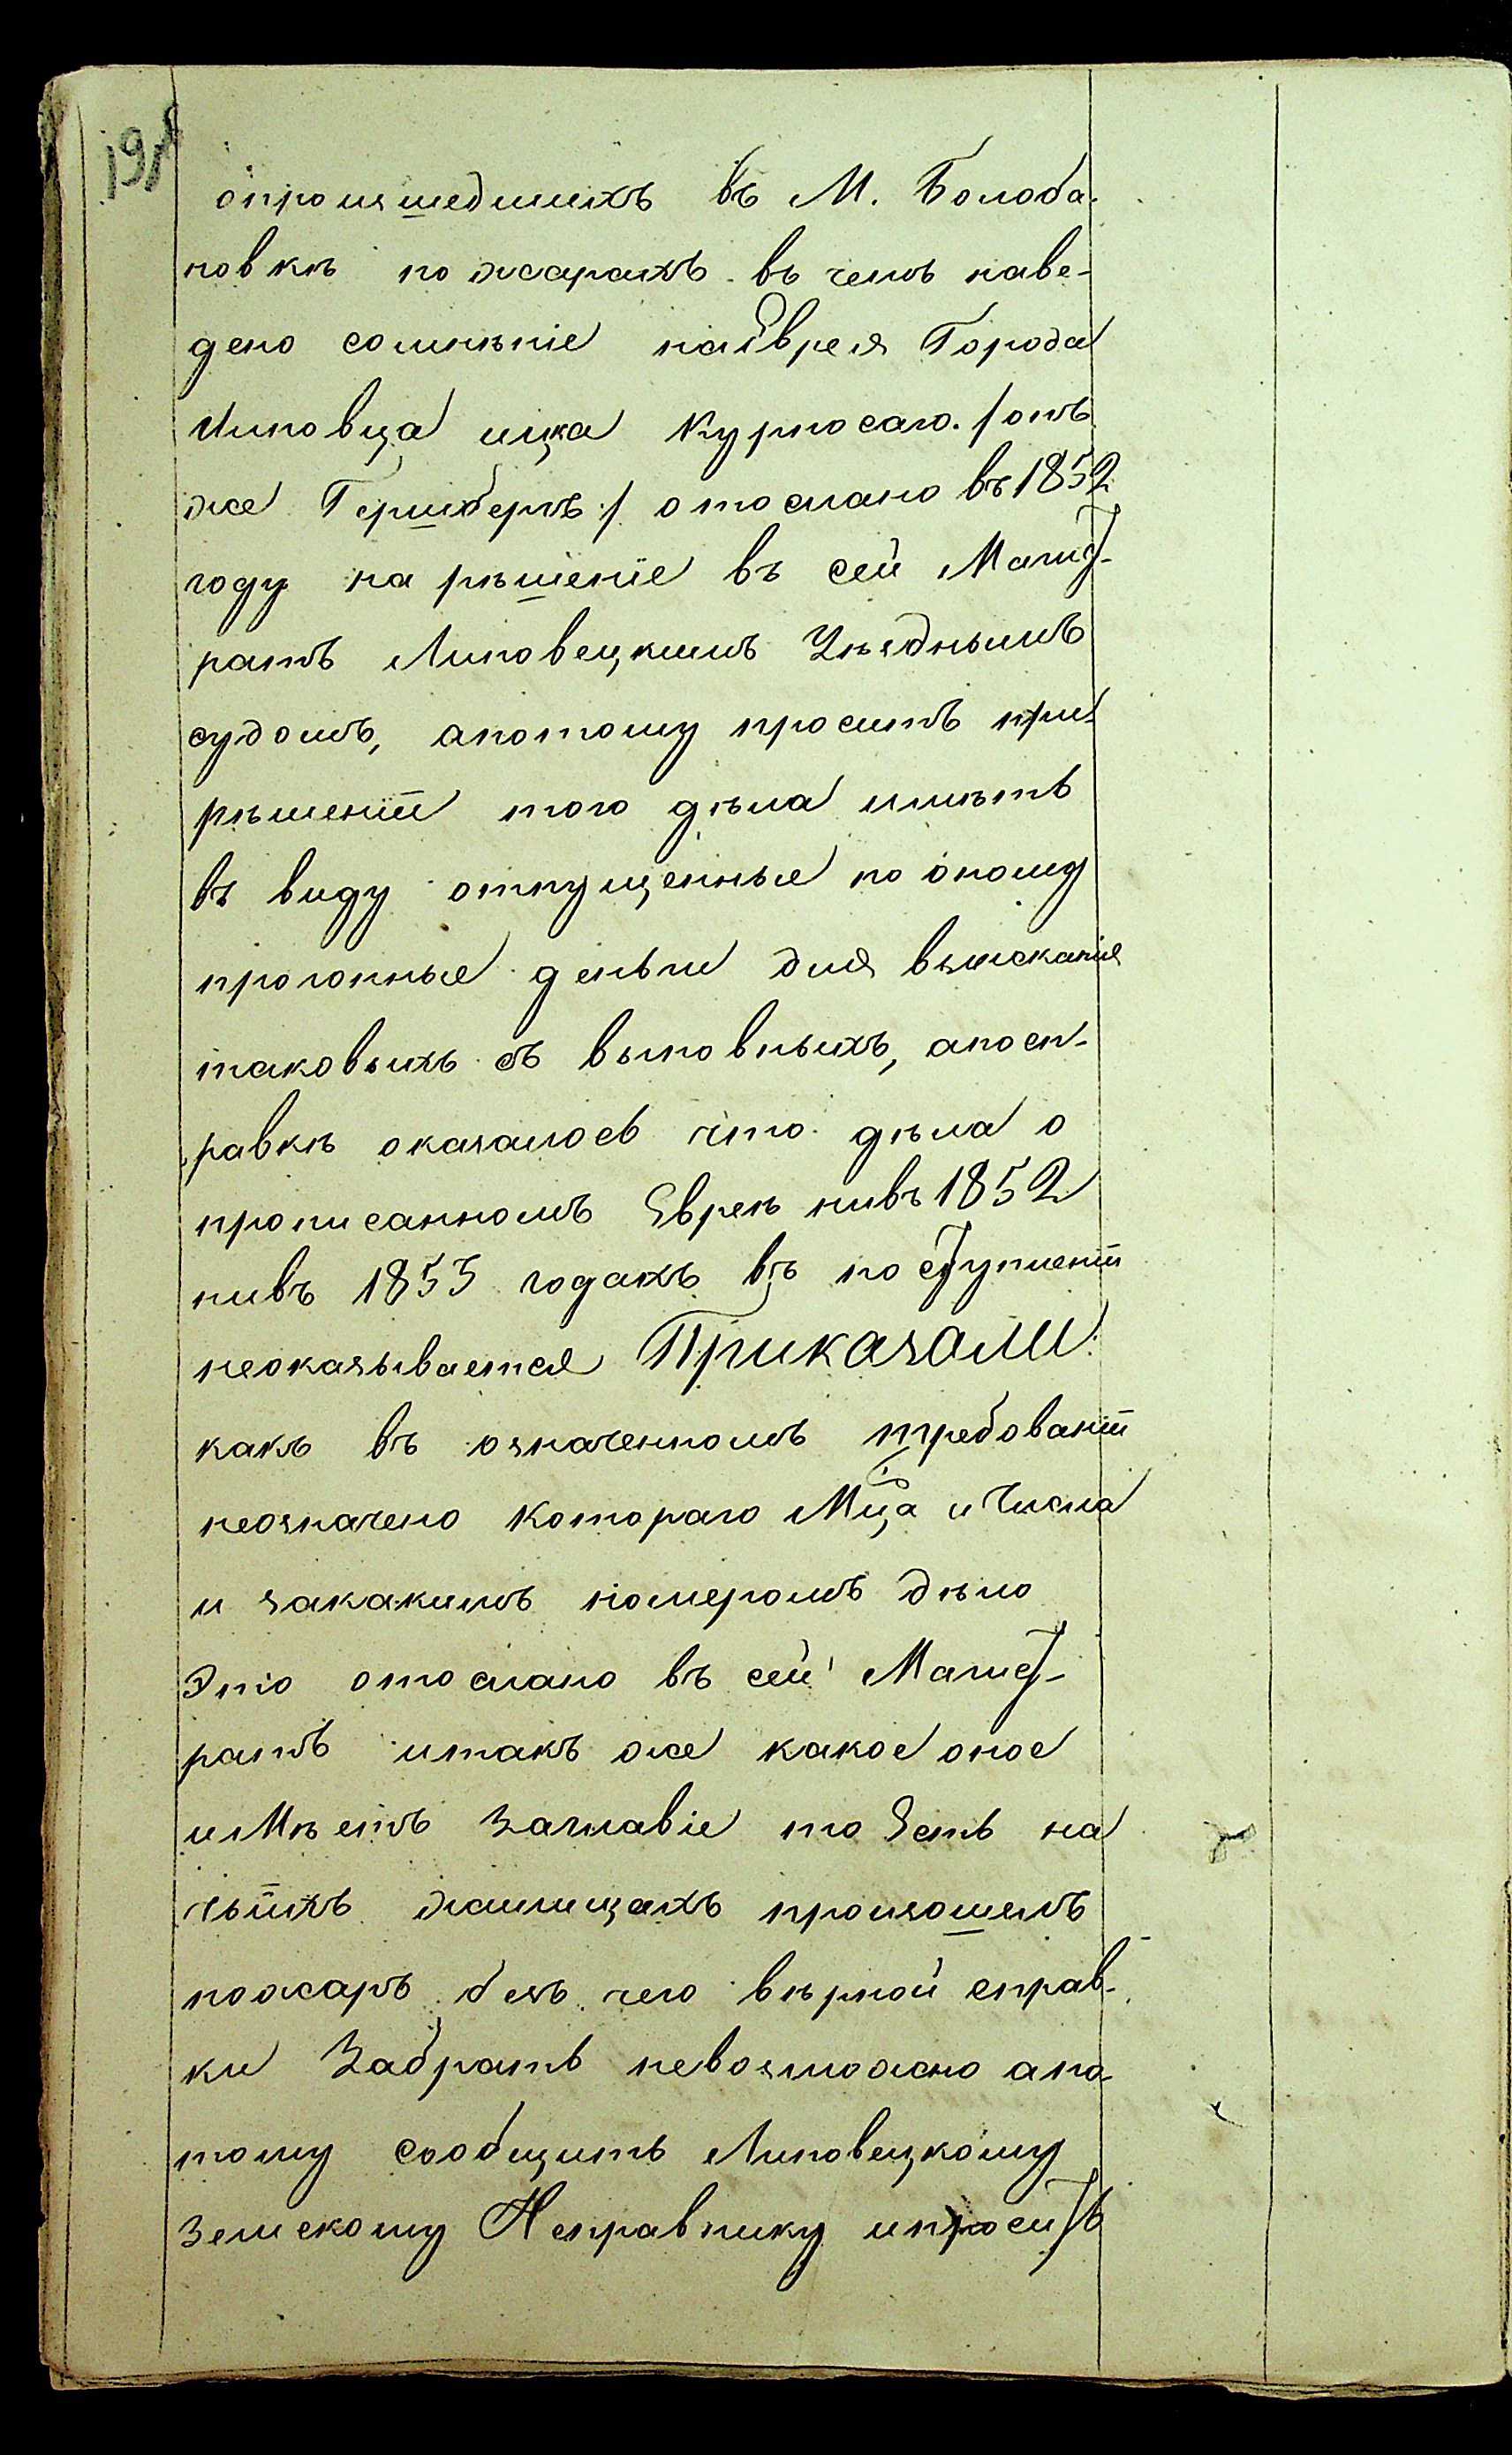 опроизшедшихъ въ М. Болоба-
новкѣ пожарахъ въ чемъ наве-
дено сомнѣніе наЕврея Города
Липовца ицка Курносаго /онъ
же Гершберъ/ отослано въ 1852
году на рѣшеніе въ сей Магист-
ратъ Липовецкимъ Уѣзднымъ
судомъ, апотому проситъ при
рѣшеніи того дѣла имѣть
въ виду отпущенные по оному
прогонные деньги для взысканія
таковыхъ съ выновныхъ, апосп-
равкѣ оказалось что дѣла о
прописанномъ Евреѣ нивъ 1852
нивъ 1853 годахъ въ поступленіи
неоказывается Приказали:
какъ въ означенномъ требованіи
неозначено котораго Мца и Числа
и закакимъ номеромъ дѣло
Это отослано въ сей Магист-
ратъ итакъ же какое оное
иМѣетъ Заглавіе то Есть на
чьіихъ жилищахъ произошелъ
пожаръ безъ чего вѣрной справ-
ки Забрать невозможно апо-
тому сообщить Липовецкому
Земскому Исправнику ипросить